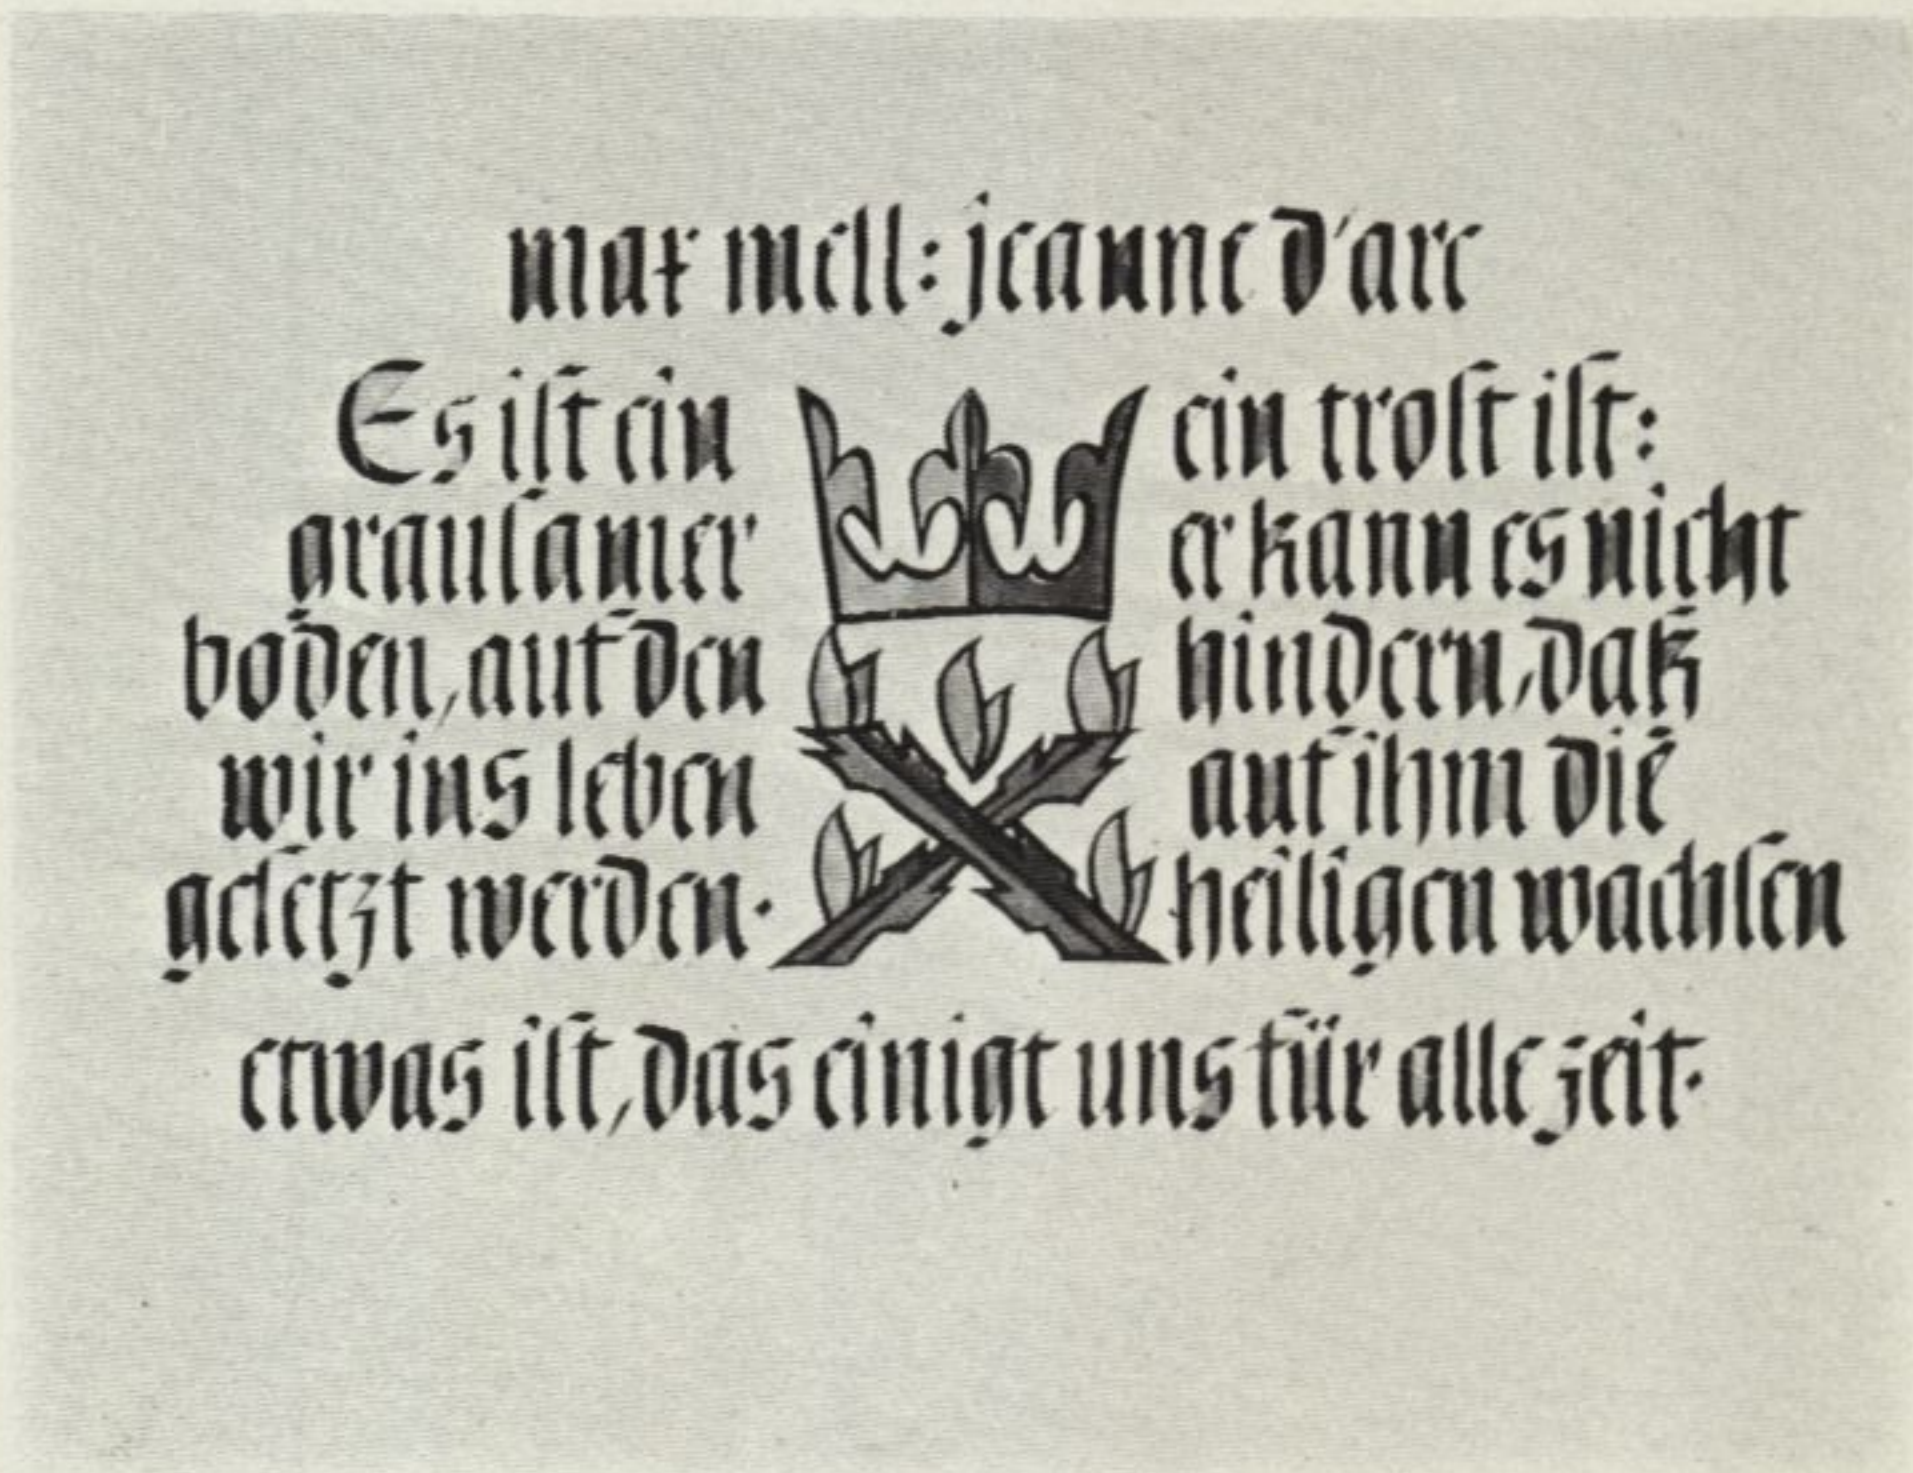 max mell: jeanne d'arc
Es iſt ein
grauſamer
boden, auf den
wir ins leben
geſetzt werden·
ein troſt iſt:
er kann es nicht
hindern, daß
auf ihm die
heiligen wachſen
etwas iſt, das einigt uns für alle zeit·